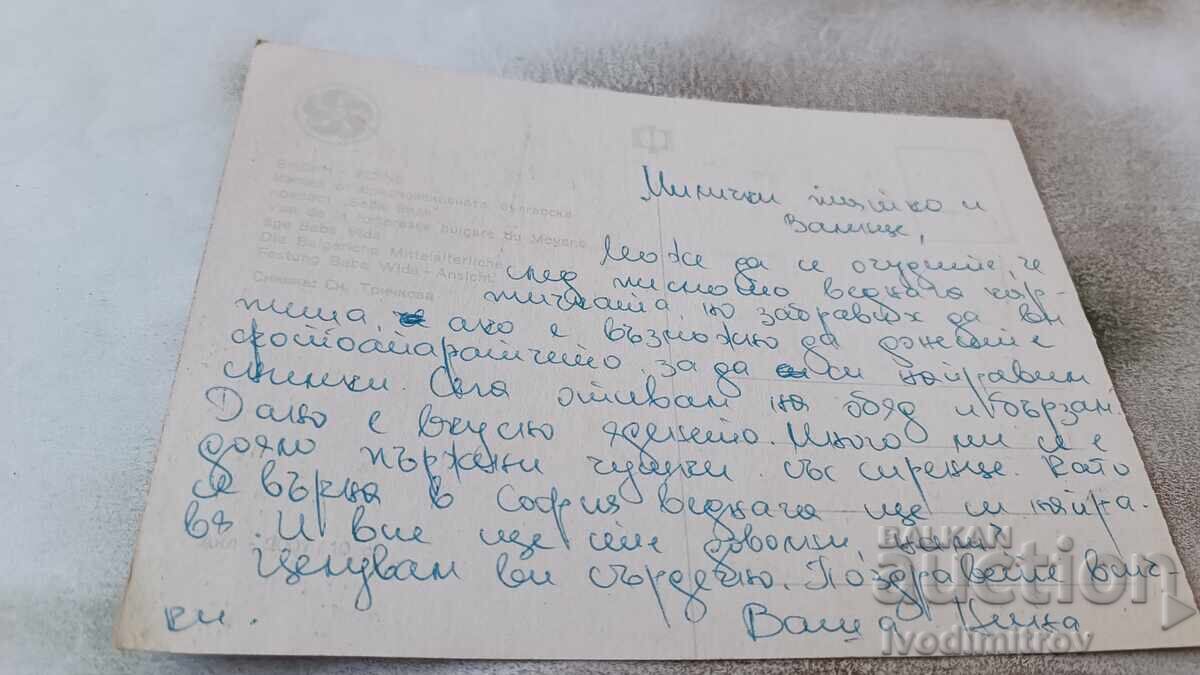 Изглед от средновековната българска
крепост "Баба Вида"
Vue de la forteresse bulgare du Moyen
age Baba Vida
Die Bulgarische Mittelalterliche
Festung Baba Wida - Ansicht
Снимка: Сн. Тричкова
Милички татко и
Валище,
Може да се очудите, че
след писмото веднага кар-
тичката, но забравих да ви
пиша, ако е възможно да донесете
фотоапаратчето, за да си направим
снимки. Сега отивам на обяд и бързам.
Дано е вкусно яденето. Много ми се е
дояло пържени чушчи със сиренце. Като
се върна в София веднага ще си напра-
вя. И вие ще сте доволни, нали
Целувам ви сърдечно. Поздравете вси-
ки.
Ваша
BALKAN
auction
ivodimitrov